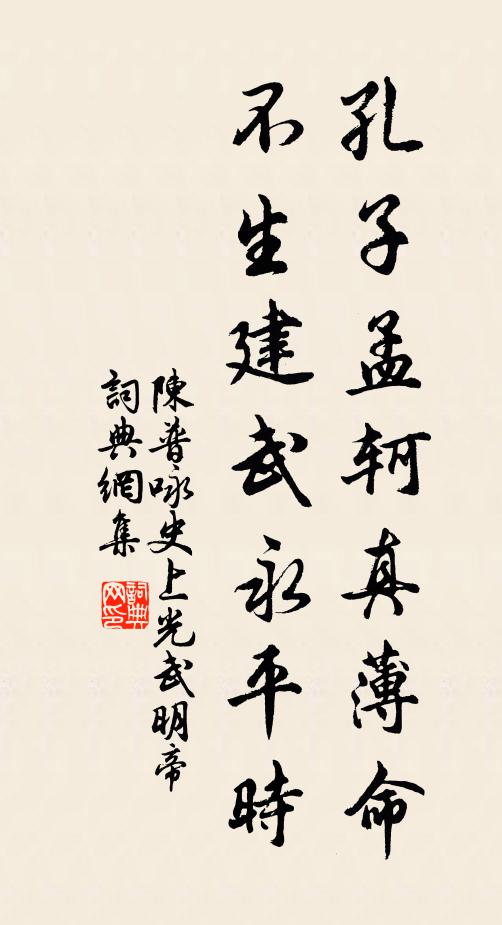 孔子孟轲真薄命
不生建武永平時
陳普咏史上光武明帝
詞典網集
詞典網印